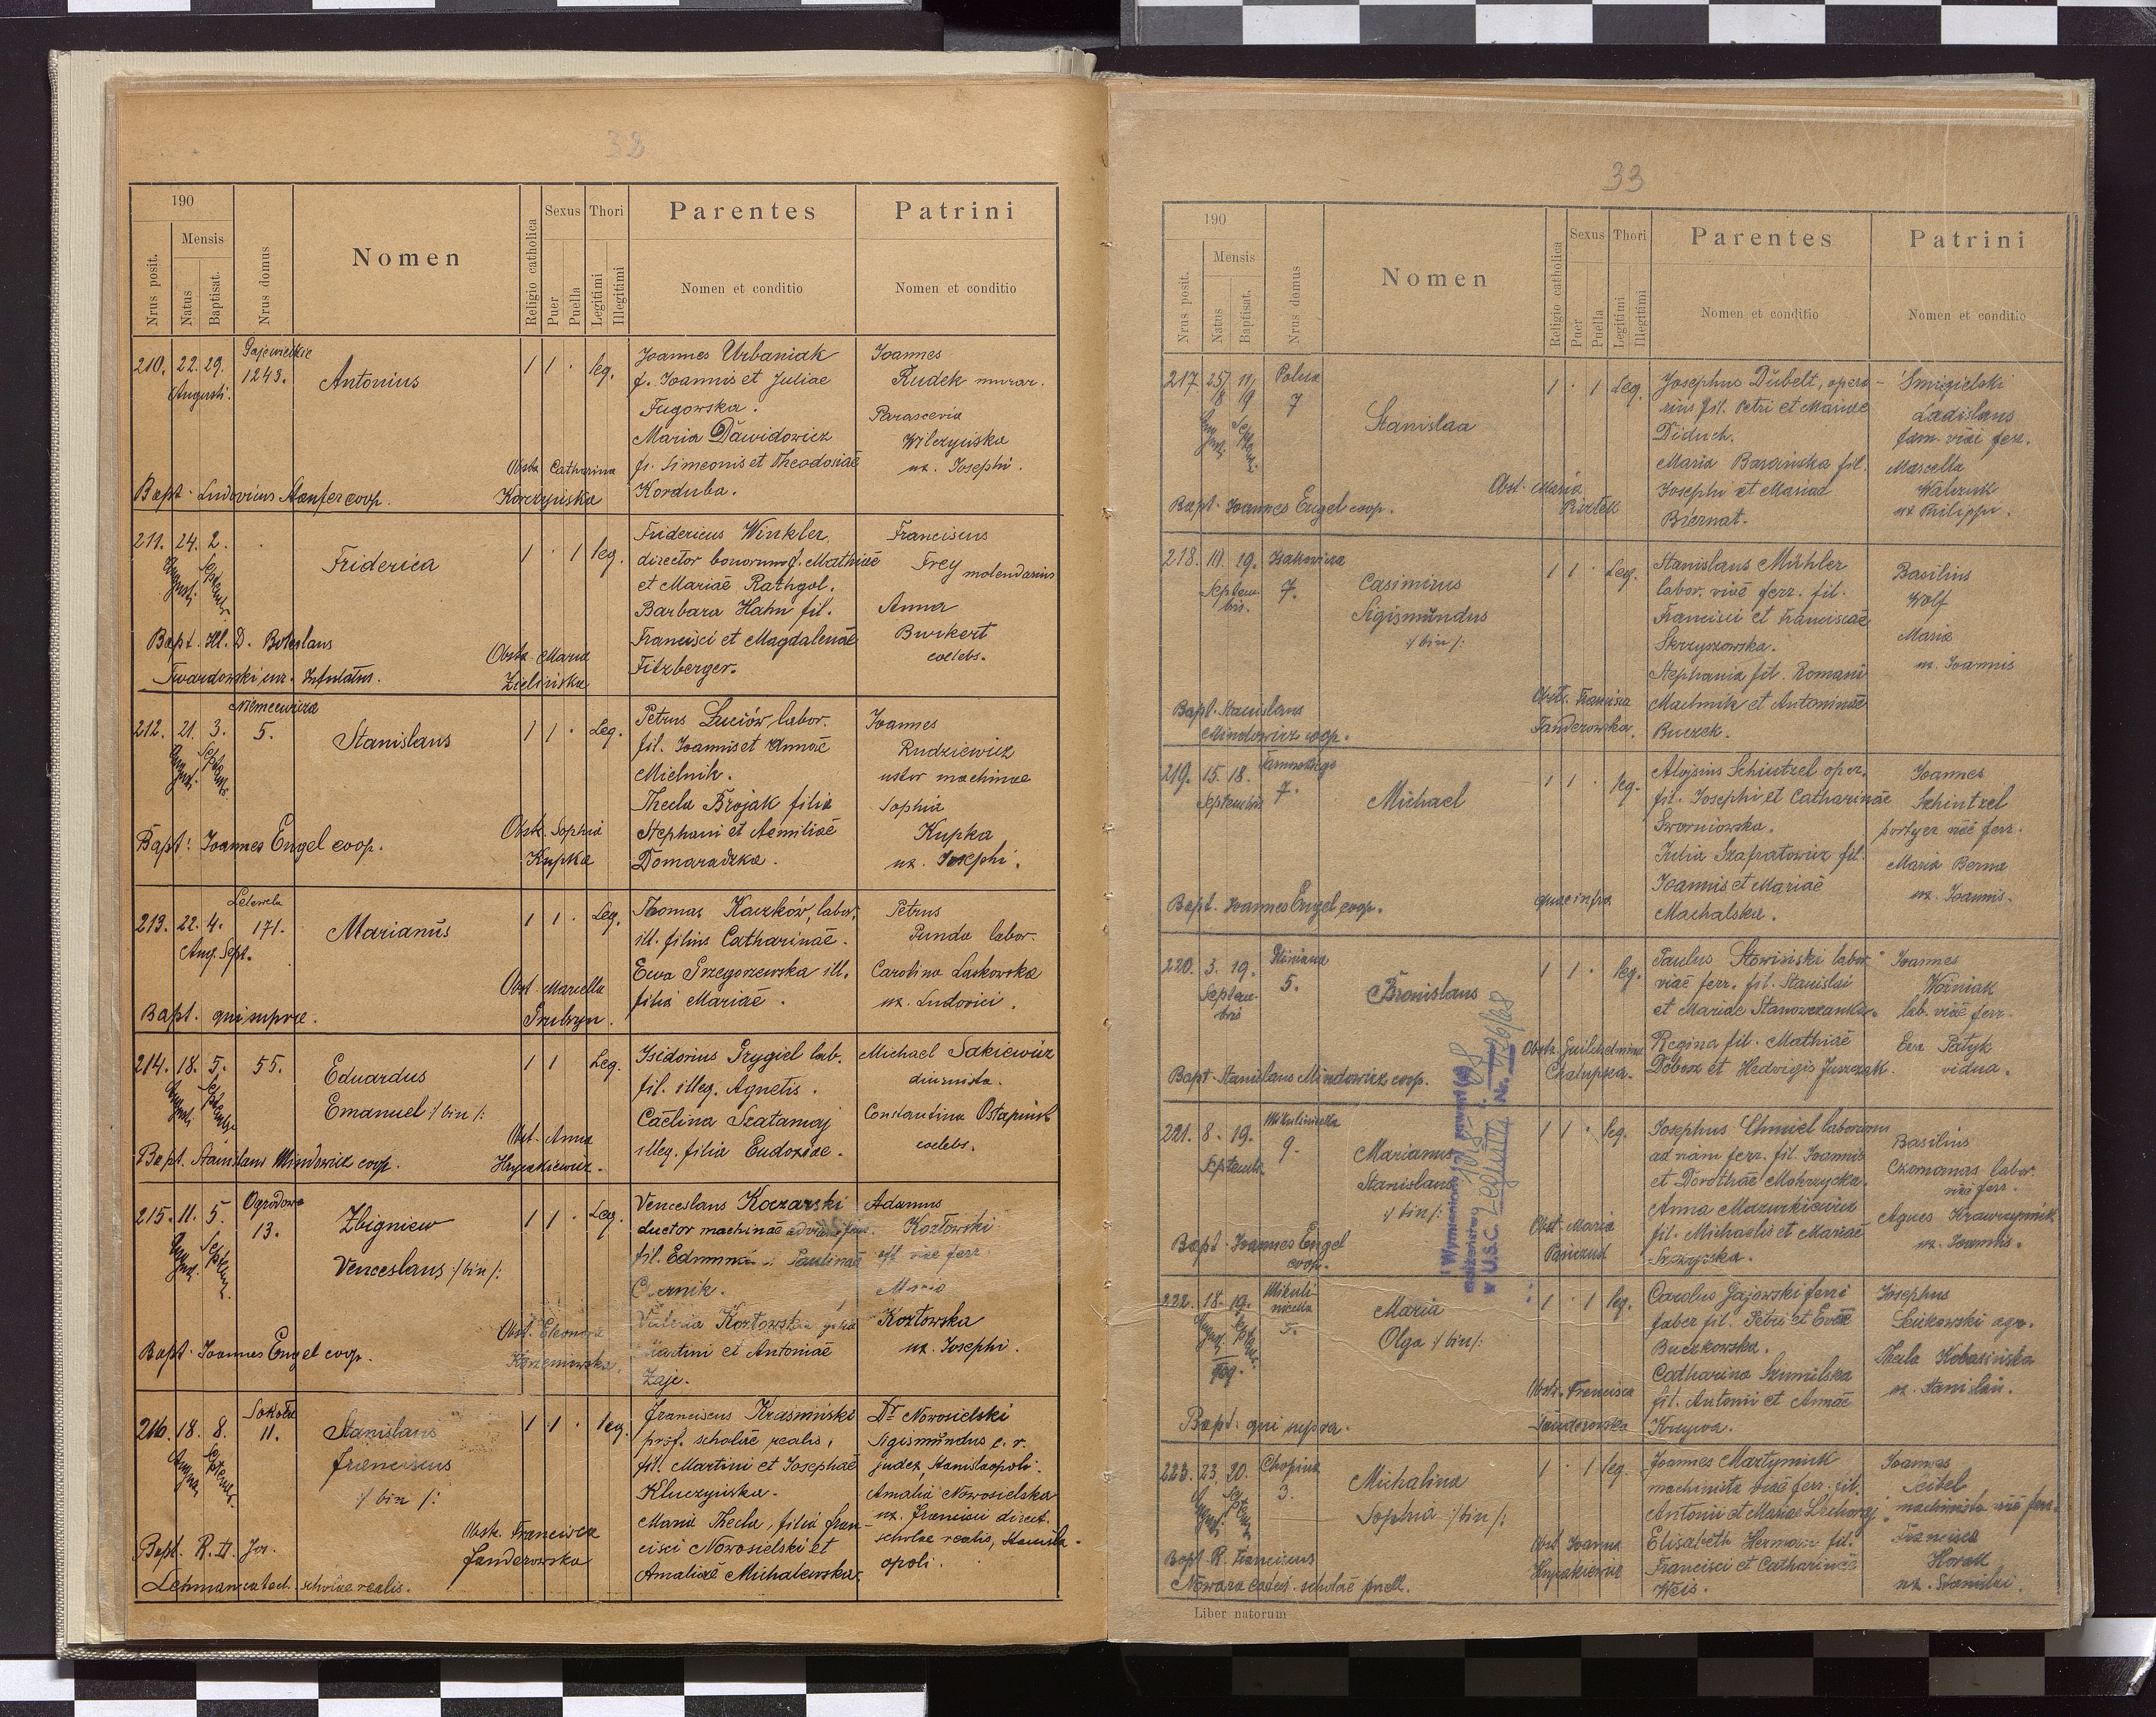 32
190
Nrus posit.
Mensis
Natus
Baptisat.
Nrus domus
Nomen
Religio catholica
Sexus
Puer
Puella
Thori
Legitimi
Illegitimi
Parentes
Nomen et conditio
Patrini
Nomen et conditio
210. 22. 29. 1243.
Augusti.
Antonius
1 1 · leg.
Joannes Urbaniak
f. Joannis et Juliae
Fugowska.
Maria Dawidowicz
fr. Simeonis et Theodosiae
Korduba.
Joannes
Rudek murar.
Parascevia
Wilczyńska
ux. Josephi.
Obstr. Catharina
Korczyńska
Bapt. Ludovicus coop.
211. 24. 2.
Augusti. Septemb.
Friderica
1 · 1 leg.
Fridericus Winkler,
director bonorum f. Mathiae
et Mariae Rathgol.
Barbara Hahn fil.
Francisci et Magdalenae
Fitzberger.
Franciscus
Frey molendarius
Anna
Burkert
coelebs.
Obstr. Maria
Zielińska
Bapt. Ill. D. Boleslaus
Twardowski cur. Infulatus.
212. 21. 3. 5.
Niemcewicza
Stanislaus
1 1 · Leg.
Petrus Łuciów labor.
fil. Joannis et Annae
Mielnik.
Thecla Brojak filia
Stephani et Aemiliae
Domaradzka.
Joannes
Rudziewicz
ustor machinae
Sophia
Kupka
ux. Josephi.
Obstr. Sophia
Kupka
Bapt: Joannes Engel coop.
213. 22. 4. 171.
Lelewela
Aug. Sept.
Marianus
1 1 · Leg.
Thomas Kaczków, labor.
ill. filius Catharinae.
Ewa Grzegorzewska ill.
filia Mariae.
Petrus
Punda labor.
Carolina Laskowska
ux. Ludovici.
Obst. Marcella
Bapt. qui supra.
214. 18. 5. 55.
Eduardus
Emanuel :/bin/:
1 1 Leg.
Isidorius Grygiel lab.
fil. illeg. Agnetis.
Caelina Szatamaj
illeg. filia Eudoxiae.
Michael Sakiewicz
diurnista.
Constantina Ostapiuk
coelebs.
Obst. Anna
Hryniakiewicz.
Bapt. Stanislaus Mindowicz coop.
215. 11. 5. 13.
Ogrodowa
Zbigniew
Venceslaus :/bin/:
1 1 · Leg.
Venceslaus Koczarski
ductor machinae ad viam ferr.
fil. Edmundi et Paulinae
Czernik.
Valeria Kozłowska filia
Martini et Antoniae
Zaje.
Adamus
Kozłowski
off. viae ferr.
Maria
Kozłowska
ux. Josephi.
Obst. Eleonora
Korzeniowska.
Bapt. Joannes Engel coop.
216. 18. 8. 11.
Sokoła
Stanislaus
Franciscus
:/bin/:
1 1 · leg.
Franciscus Krasniński
prof. scholae realis,
fil. Martini et Josephae
Kluczyńska.
Maria Thecla, filia Fran-
cisci Nowosielski et
Amaliae Michalewska.
Dr Nowosielski
Sigismundus c. r.
judex Stanislaopoli.
Amalia Nowosielska
ux. Francisci direct.
scholae realis, Stanisla-
opoli.
Obstr. Francisca
Janderowska
Bapt. R. D. Jos.
Lehman catech. scholae realis.
33
190
Nrus posit.
Mensis
Natus
Baptisat.
Nrus domus
Nomen
Religio catholica
Sexus
Puer
Puella
Thori
Legitimi
Illegitimi
Parentes
Nomen et conditio
Patrini
Nomen et conditio
217. 25/8 11/19 7
Polua
Stanislaa
1 · 1 Leg.
Josephus Dubelt, opera-
rius fil. Petri et Mariae
Diduch.
Maria Barańska fil.
Josephi et Mariae
Biernat.
Śmigielski
Ladislaus
fam. viae ferr.
Marcella
Walczuk
ux Philippi.
Obst. Maria
Piertek
Bapt. Joannes Engel coop.
218. 11. 19. 7.
Septem-
bris.
Casimirus
Sigismundus
:/bin/:
1 1 · Leg.
Stanislaus Mühler
labor. viae ferr. fil.
Francisci et Franciscae
Skrzyszowska.
Stephania fil. Romani
Machnik et Antoninae
Buczek.
Basilius
Wolf
Maria
ux. Joannis
Obstr. Francisca
Janderowska.
Bapt. Stanislaus
Mindowicz coop.
219. 15. 18. 7.
Septembris
Michael
1 1 · leg.
Aloysius Schintzel oper.
fil. Josephi et Catharinae
Swormiowska.
Julia Szafratowicz fil.
Joannis et Mariae
Machalska.
Joannes
Schintzel
portyer viae ferr.
Maria Berna
ux. Joannis.
quae infra
Bapt. Joannes Engel coop.
220. 3. 19. 5.
Septem-
bris
Bronislaus
1 1 · leg.
Paulus Słowiński labor.
viae ferr. fil. Stanislai
et Mariae Stanowczanka.
Regina fil. Mathiae
Dobosz et Hedvigis Juszczak.
Joannes
Woźniak
lab. viae ferr.
Eva Patyk
vidua.
Obstr. Guilhelmina
Chalupska.
Bapt. Stanislaus Mindowicz coop.
221. 8. 19. 9.
Septemb.
Marianus
Stanislaus
:/bin/:
1 1 · leg.
Josephus Chmiel laborans
ad viam ferr. fil. Joannis
et Dorotheae Mokrzycka.
Anna Mazurkiewicz
fil. Michaelis et Mariae
Basilius
labor.
viae ferr.
Agnes Krawczyniuk
ux. Joannis.
Obst. Maria
Bapt. Joannes Engel
coop.
Wymieniony zawarł(a)
małżeństwo
w U.S.C. Legnica Nr. 726/68
222. 18. 19. 5.
Mikuli-
niecka
Maria
Olga :/bin/:
1 · 1 leg.
Carolus Gajowski ferri
faber fil. Petri et Evae
Buczkowska.
Catharina Szumilska
fil. Antonii et Annae
Krzywa.
Josephus
Seńkowski agr.
Thecla Kobasińska
ux. Stanislai.
Obstr. Francisca
Janderowska
Bapt. qui supra.
223. 23. 20. 3.
Chopina
Michalina
Sophia :/bin/:
1 · 1 leg.
Joannes Martyniuk
machinista viae ferr. fil.
Antonii et Mariae
Elisabeth Herman fil.
Francisci et Catharinae
Weis.
Joannes
Seibel
machinista viae ferr.
Francisca
Horak
ux. Stanislai.
Obst. Joanna
Hryniakiewicz
Bapt. R. Franciscus
Nowara catech. scholae puell.
Liber natorum